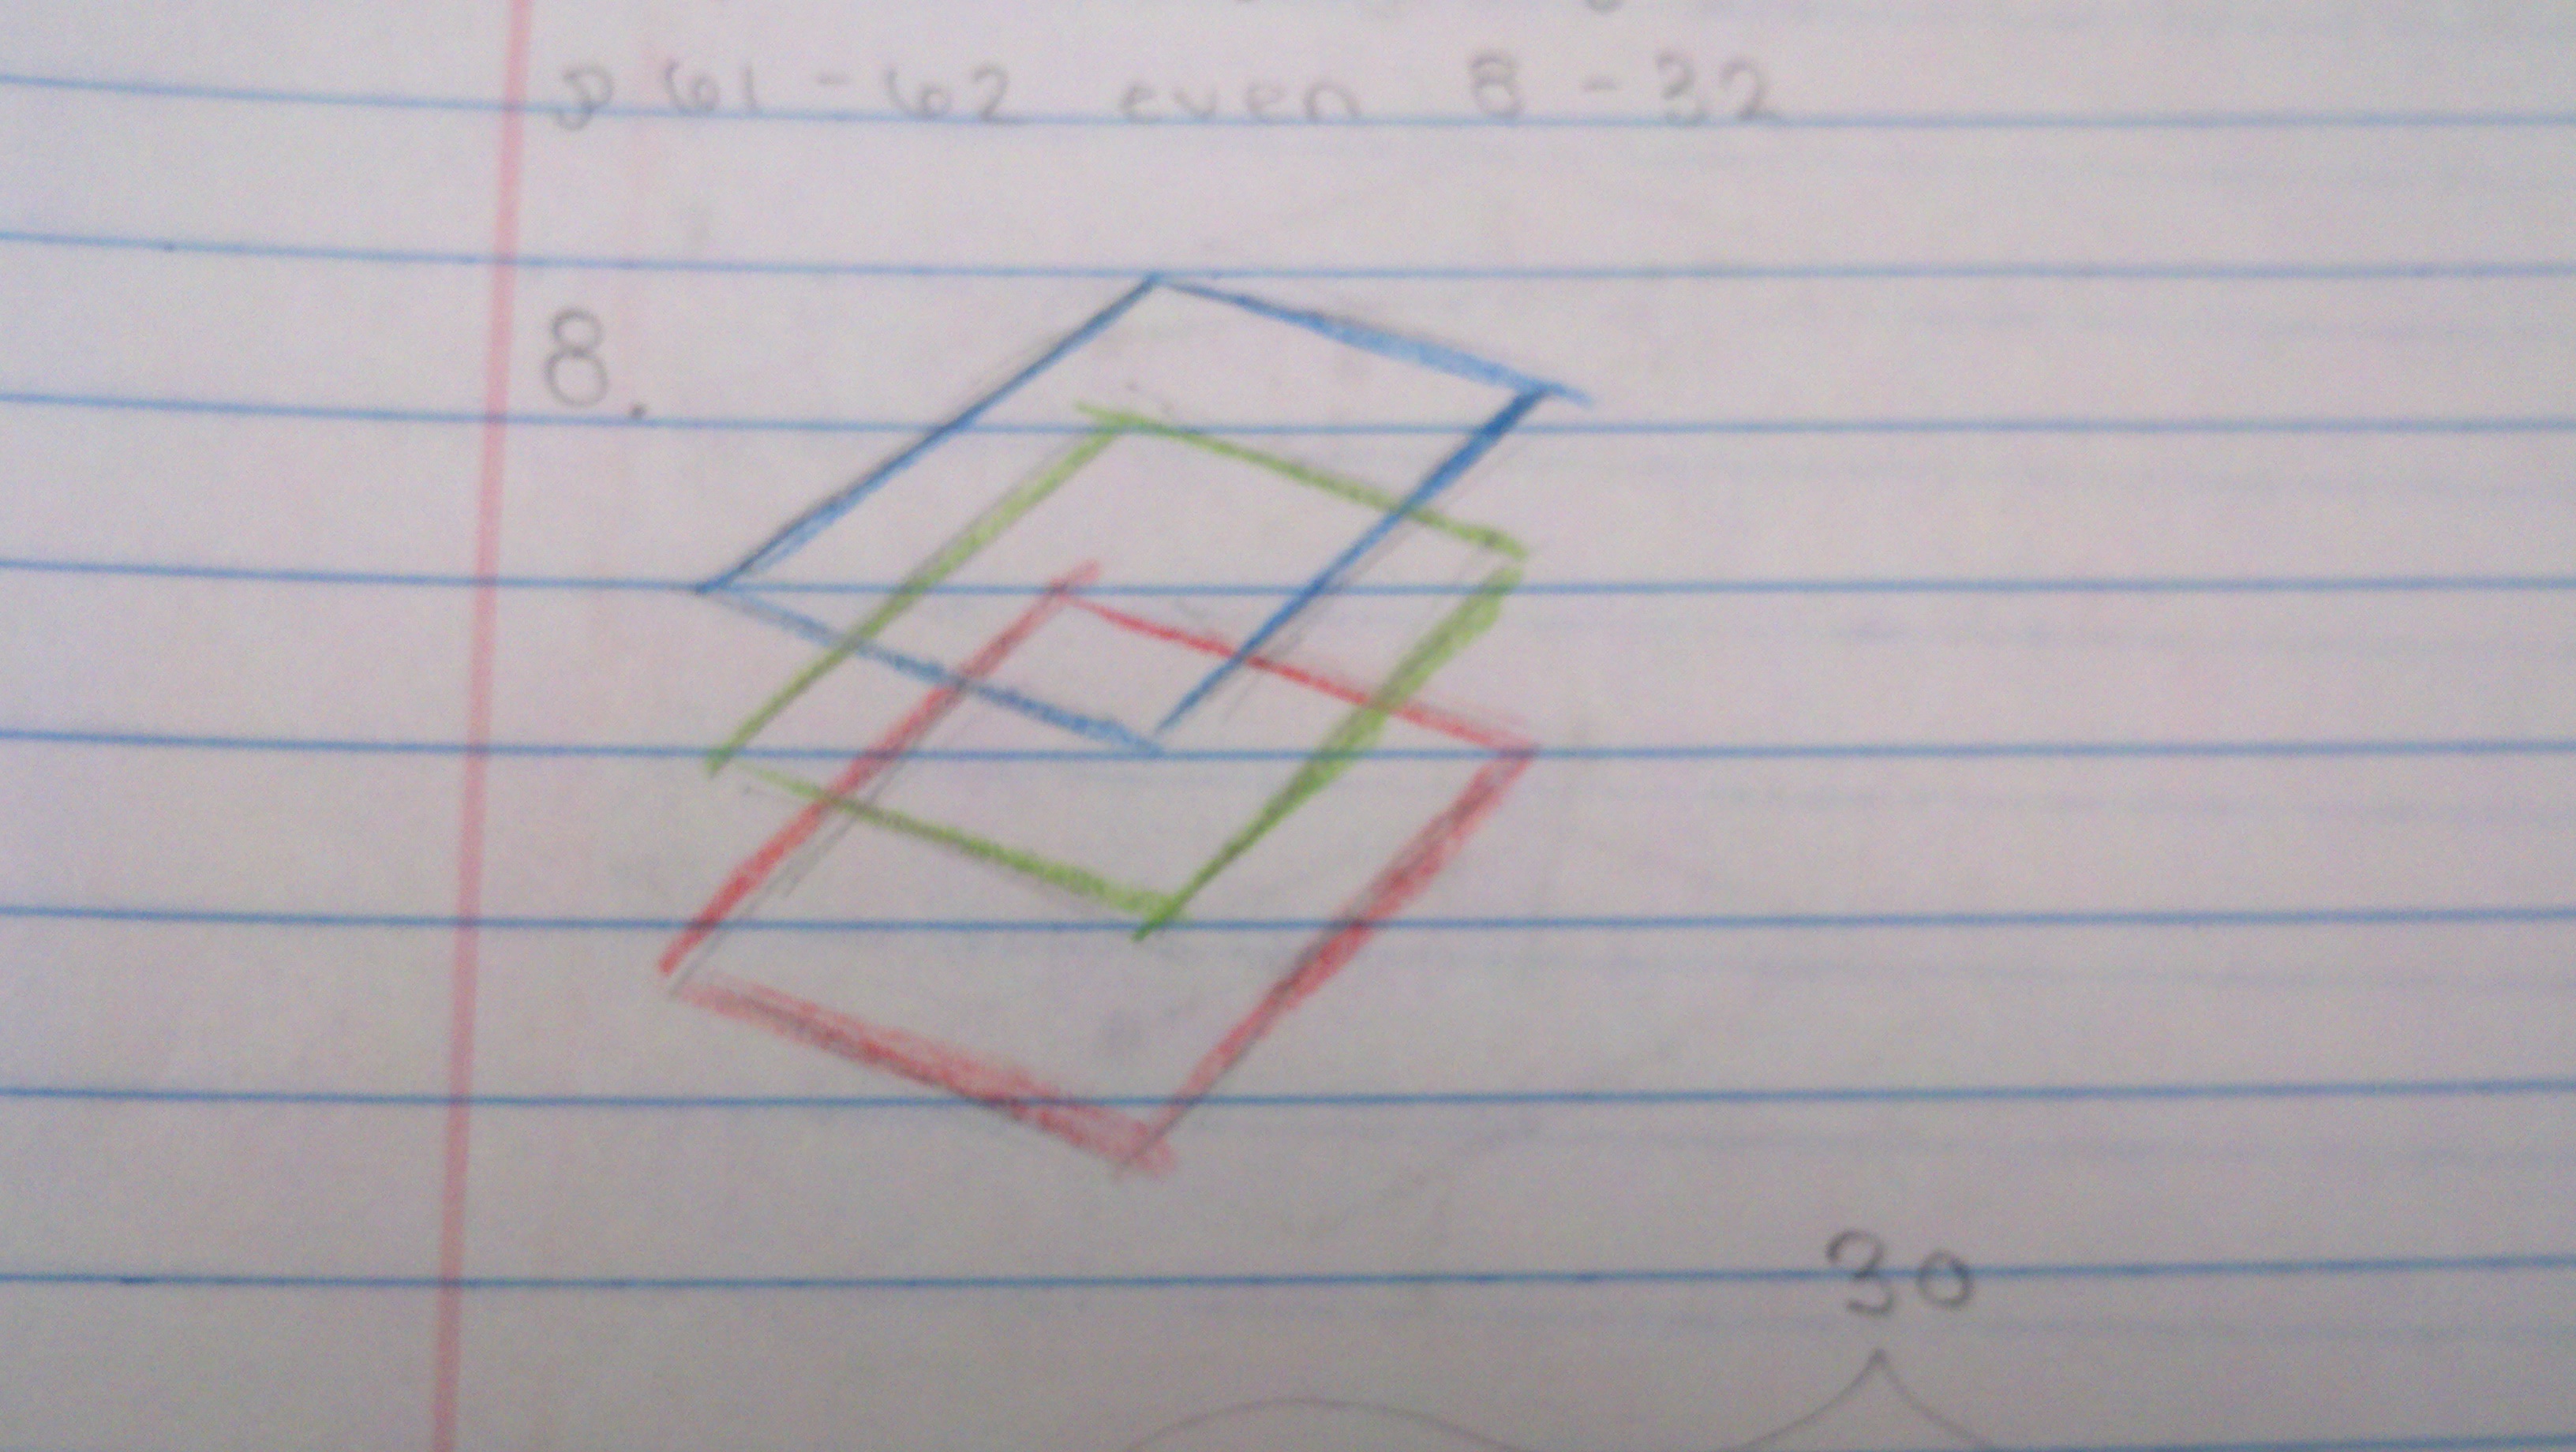 p 61-62 even 8-32
8.
30